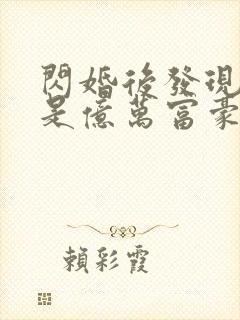 閃婚後發現
是億萬富豪
賴彩霞